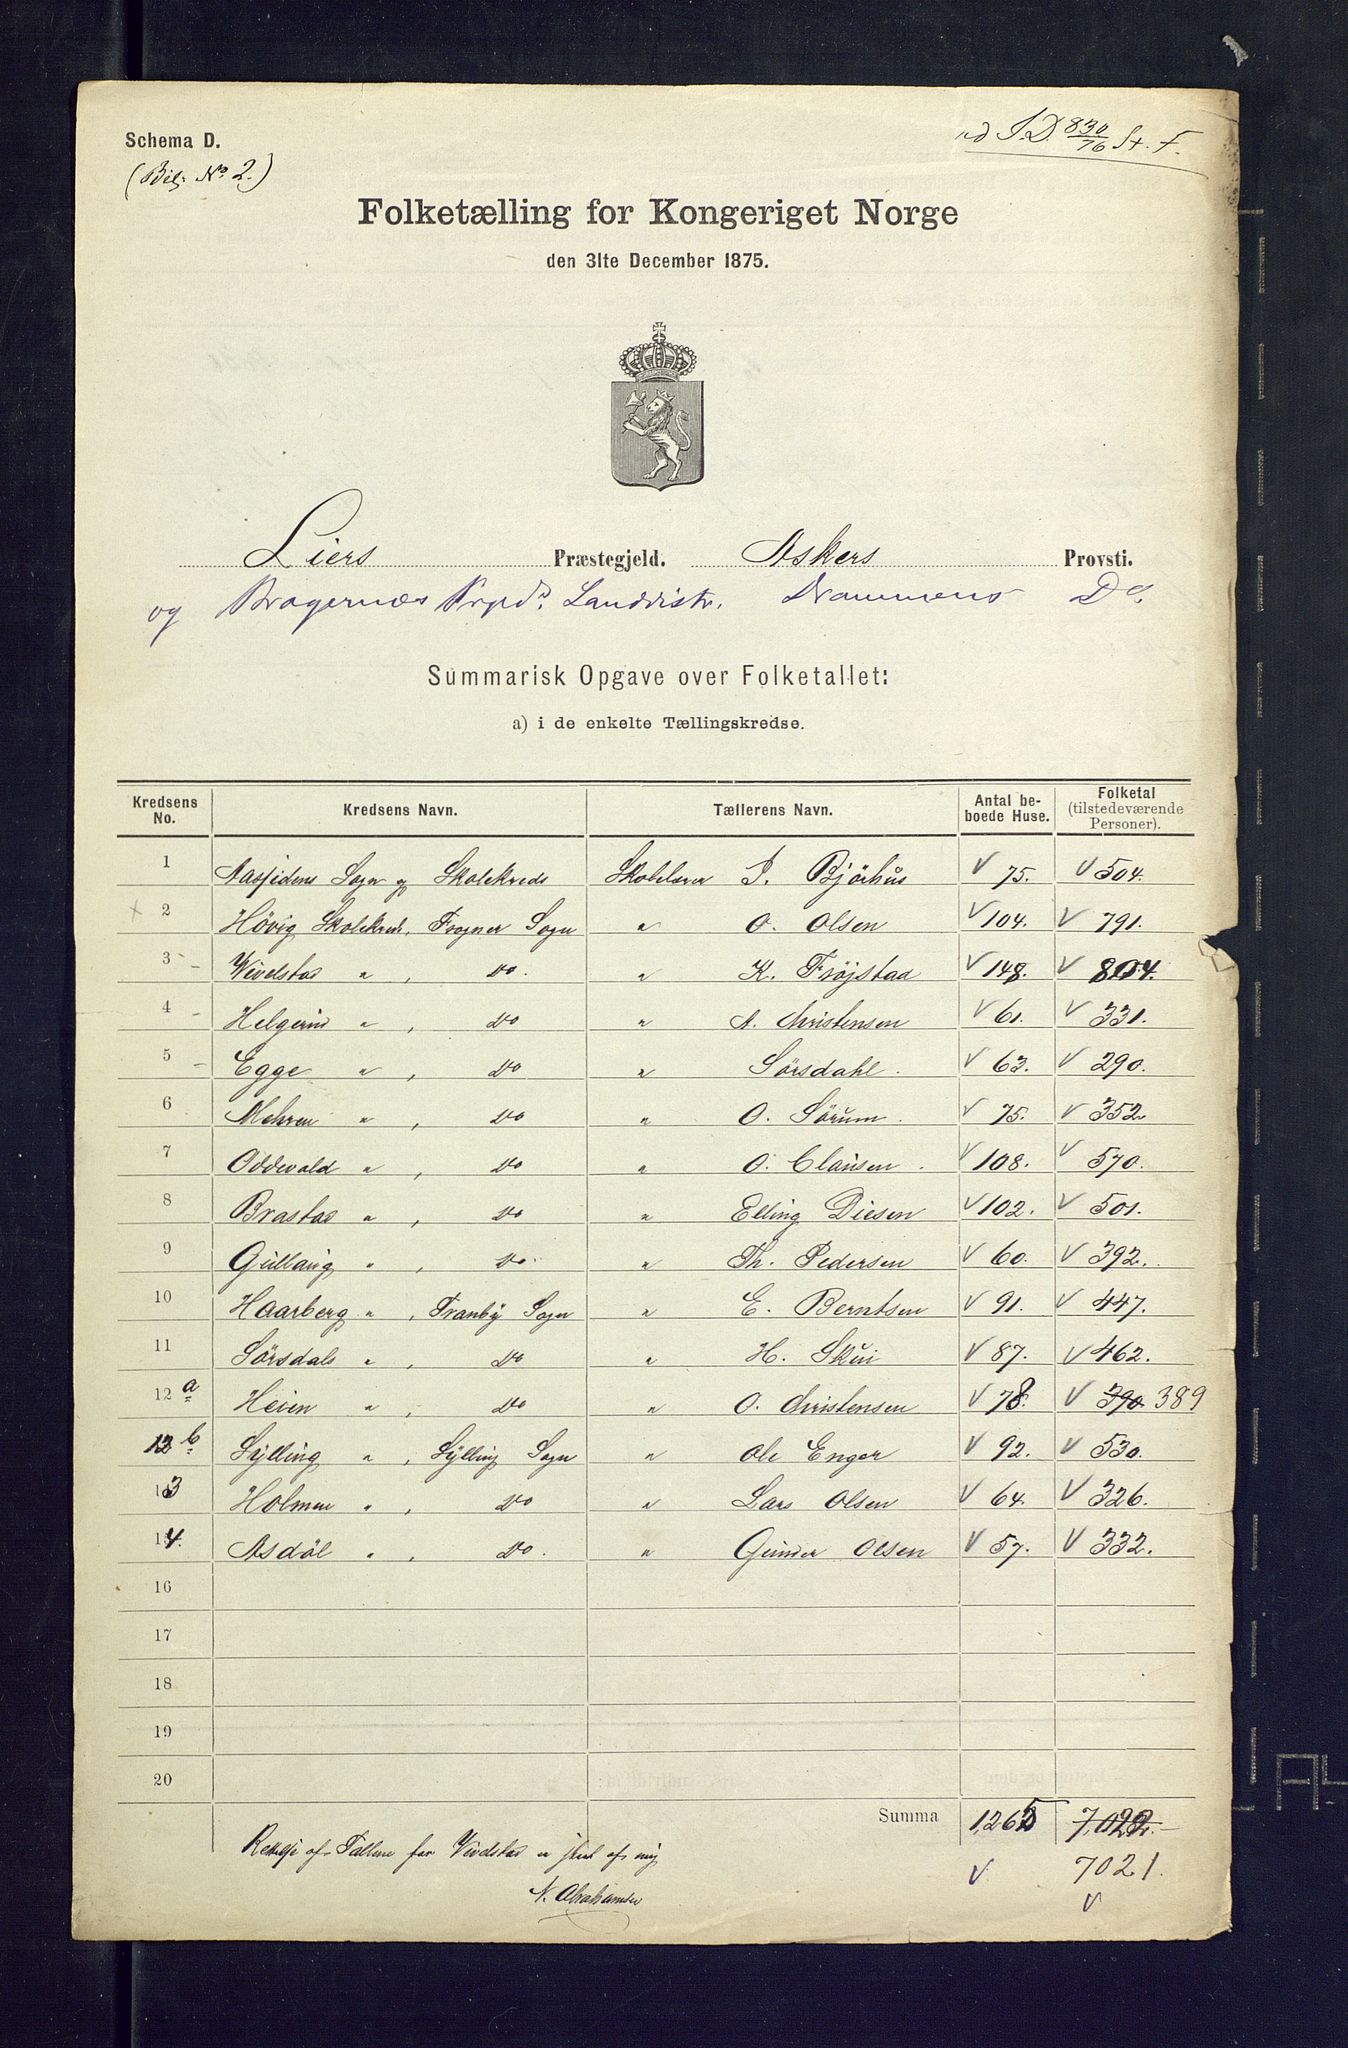 Schema D.
(Bil: No 2.)
ad J.D. 830/76 St. F.
Folketælling for Kongeriget Norge
den 31te December 1875.
Liers Præstegjeld. Askers Provsti.
og Bragernæs Prgds Landdistr. Drammens Do.
Summarisk Opgave over Folketallet:
a) i de enkelte Tællingskredse.
Kredsens No. Kredsens Navn. Tællerens Navn. Antal beboede Huse. Folketal (tilstedeværende Personer).
1 Aassidens Sogn og Skolekreds Skolelærer J. Bjørhus V 75. V 504.
2 Høvig Skolekreds, Frogner Sogn " O. Olsen V 104. V 791.
3 Vivelstad " , do. " K. Frøjstad V 148. V 804.
4 Helgerud " , do " A. Christensen V 61. V 331.
5 Egge " , do " Sørsdahl. V 63. V 290.
6 Mehren " , do " O. Sørum. V 75. V 352.
7 Oddevald " , do " O. Clausen. V 108. V 570.
8 Brastad " , do " Elling Diesen V 102. V 501.
9 Gullaug " , do. " Th. Pedersen V 60. V 392.
10 Haarberg " , Tranby Sogn " E. Berntsen V 91. V 447.
11 Sørsdals " , do " H. Skui V 87. V 462.
12 a Heien " , do " O. Christensen V 78. V 390. 389
12 b Sylling " , Sylling Sogn " Ole Enger V 92. V 530.
13 Holmen " , do " Lars Olsen V 64. V 326.
14. Asdøl " , do. " Gunder Olsen V 57. V 332.
16
17
18
19
20
Summa 1,265 7,022.
Rettelse af Tallene for Vivelstad er skeet af mig V 7021.
N. Abrahamsen V